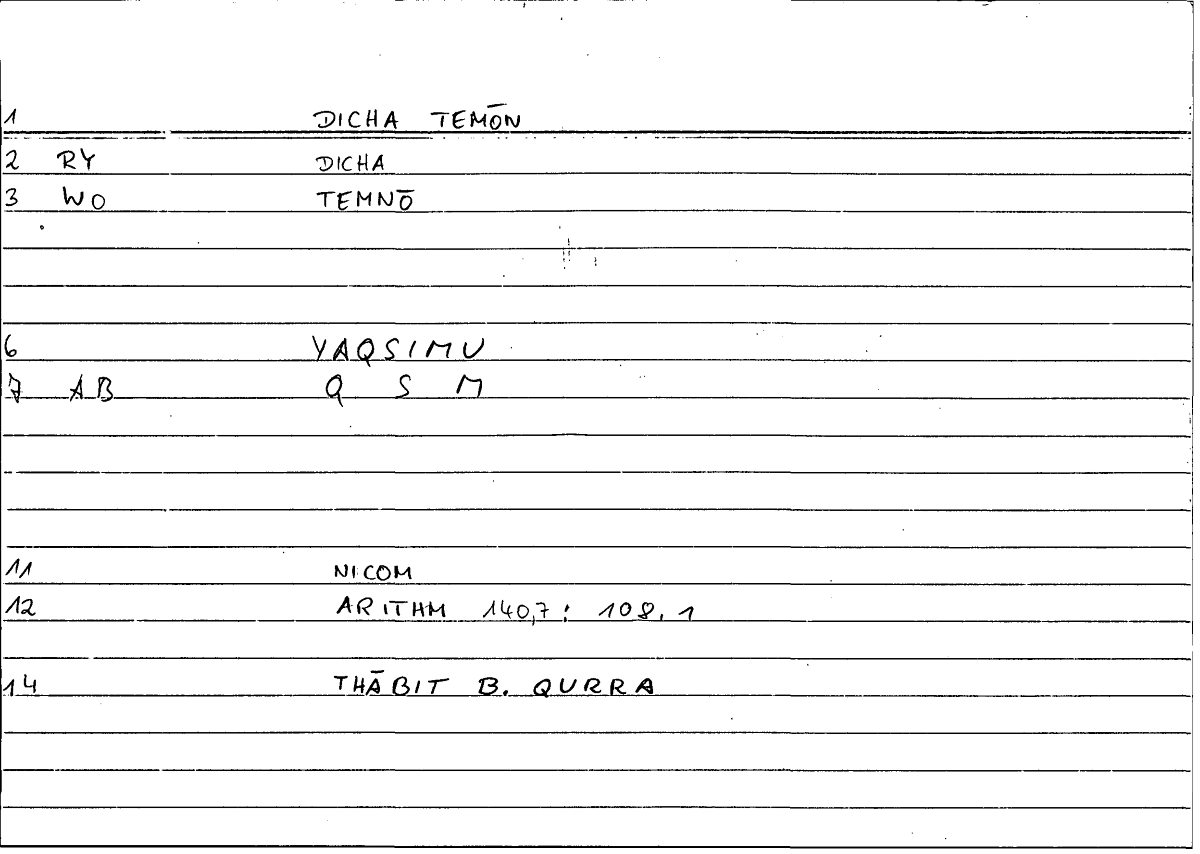 1 DICHA TEMŌN
2 RY DICHA
3 WO TEMNŌ
6 YAQSIMU
7 AB Q S M
11 NICOM
12 ARITHM 140,7 : 108,1
14 THĀBIT B. QURRA